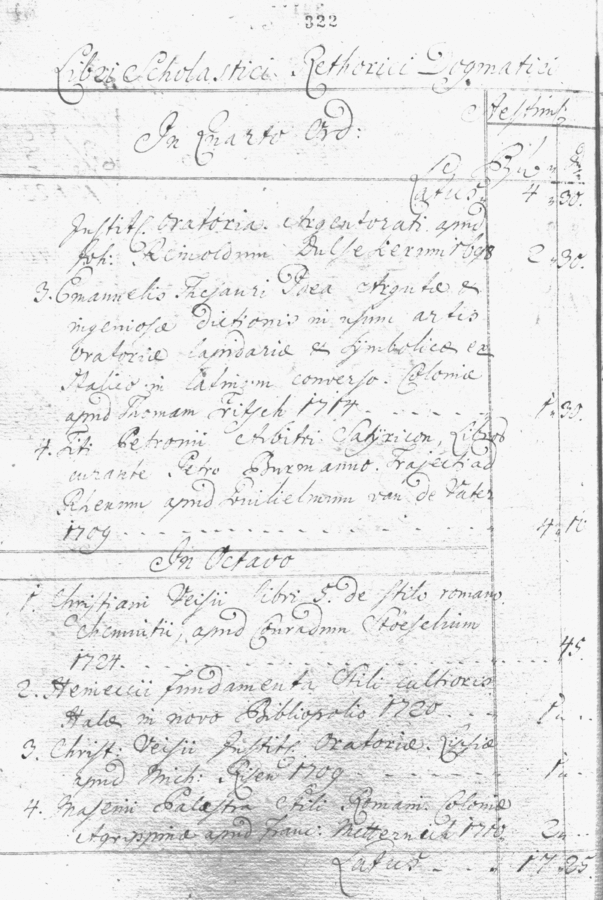 322
Libri Scholastici Rethorici Dogmatici
In Quarto Ord:
Aestim:
Latus. 4 „ 30.
Instit: Oratoria. Argentorati apud
Joh: Reinoldum Dulseckerum 1698 2 „ 30.
3. Emanuelis Thesauri Idea Argutæ &
ingeniosæ dictionis in usum artis
Oratoriæ lapidariæ & symbolicæ ex
Italico in latinum converso. Coloniæ
apud Thomam Fritsch 1714 - - - - - - 1 „ 30.
4. Titi Petronii Arbitri Satyricon, Libros
curante Petro Burmanno. Trajecti ad
Rhenum apud Guilielmum van de Vater
1709 - - - - - - - - - - 4 „ 10
In Octavo
1. Christiani Veisii libri 5. de stilo romano.
Chemnitii, apud Conradum Stoeselium
1724. - - - - - - - - - - 45.
2. Heineccii Fundamenta Stili cultioris
Halæ in novo Bibliopolio 1720 - - 1 „ - -
3. Christ: Veisii Instit: Oratoriæ. Lipsiæ
apud Mich: 1709 - - - - - 1 „ - -
4. Masenii Palæstra Stili Romani. Coloniæ
Agrippinæ apud Franc: Metternich 1710. 2 „ - -
Latus - - - - 17 25.